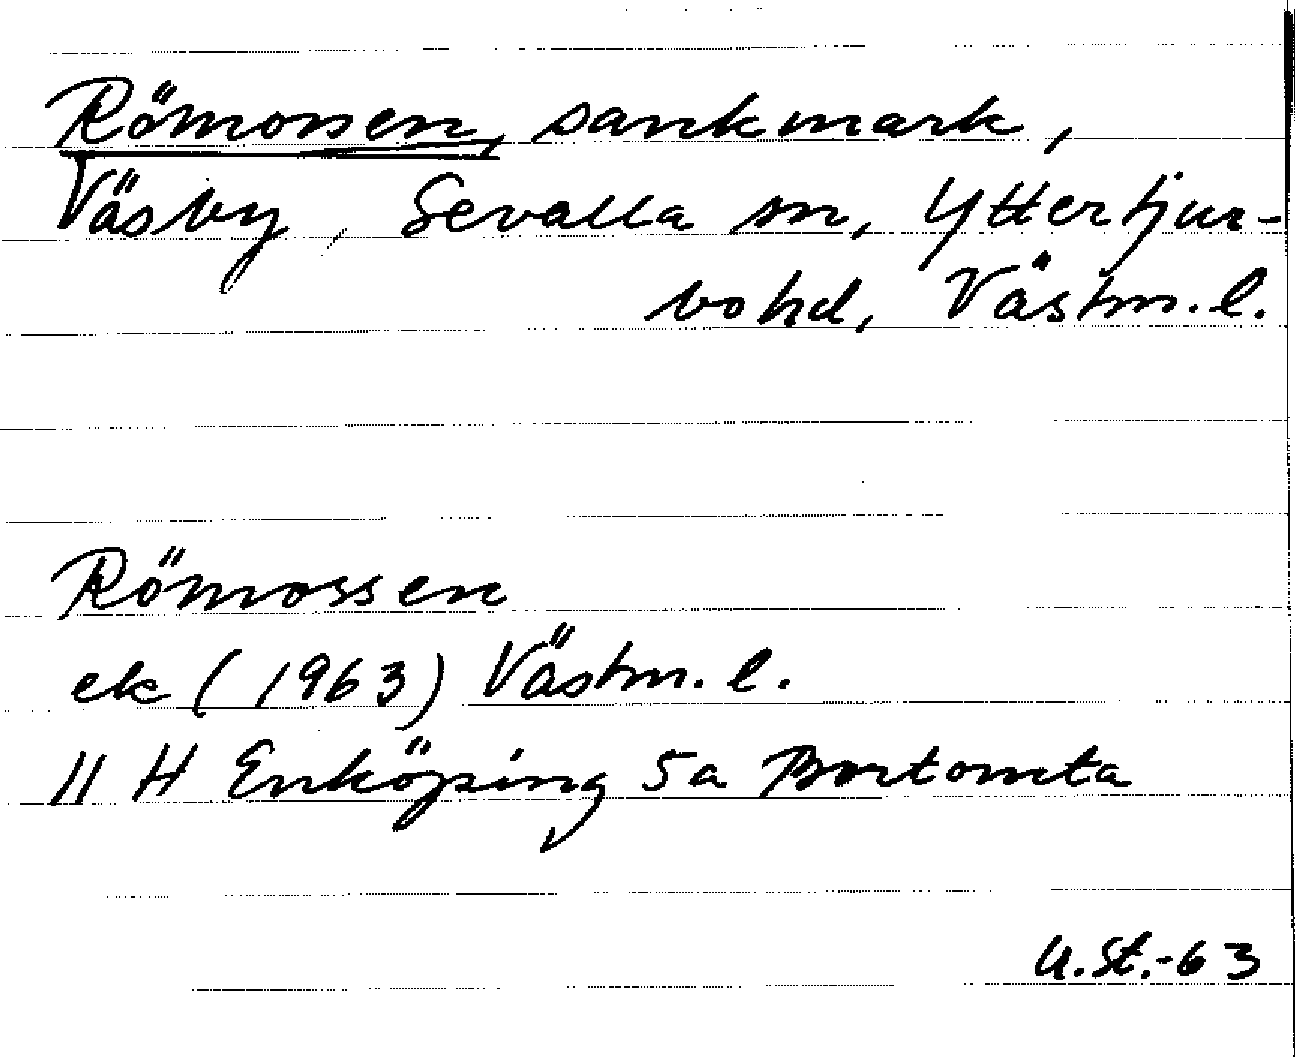 Römossen, sankmark,
Väsby, Sevalla sn, Yttertjur-
bo hd, Västm. l.
Römossen
ek (1963) Västm. l.
11 H Enköping 5a Bortomta
U.St.-63